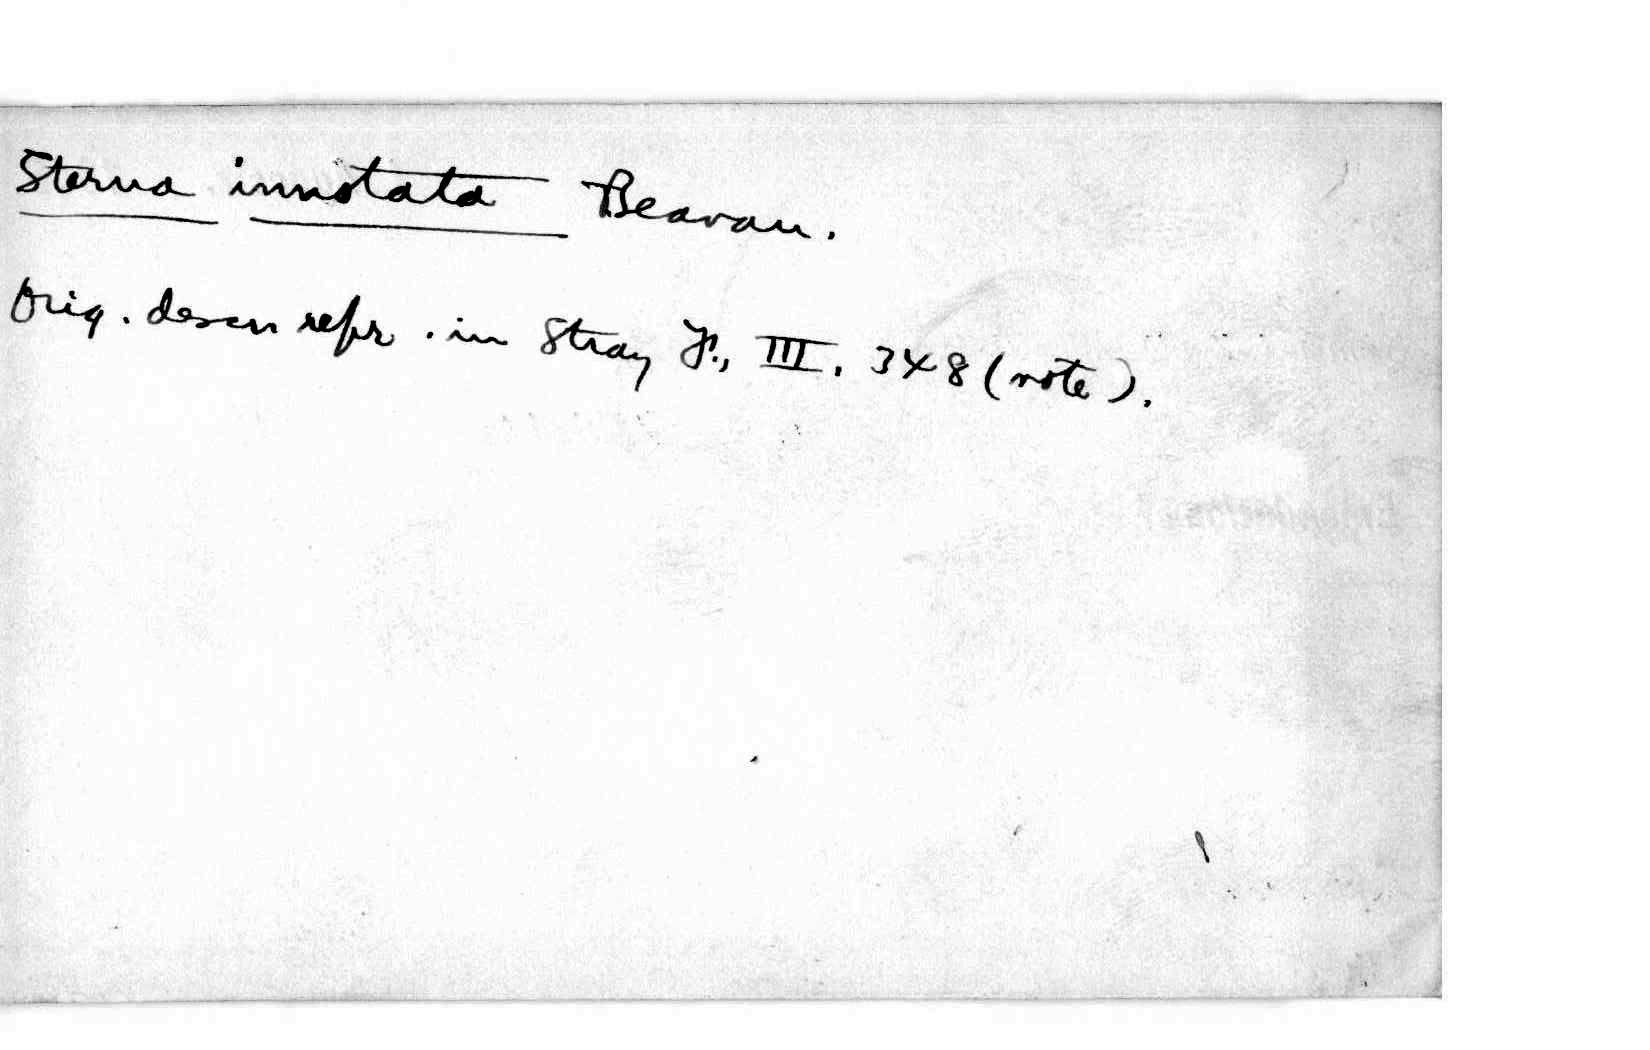 Sterna innotata Beavan.
Orig. descn repr. in Stray F., III, 348 (note).